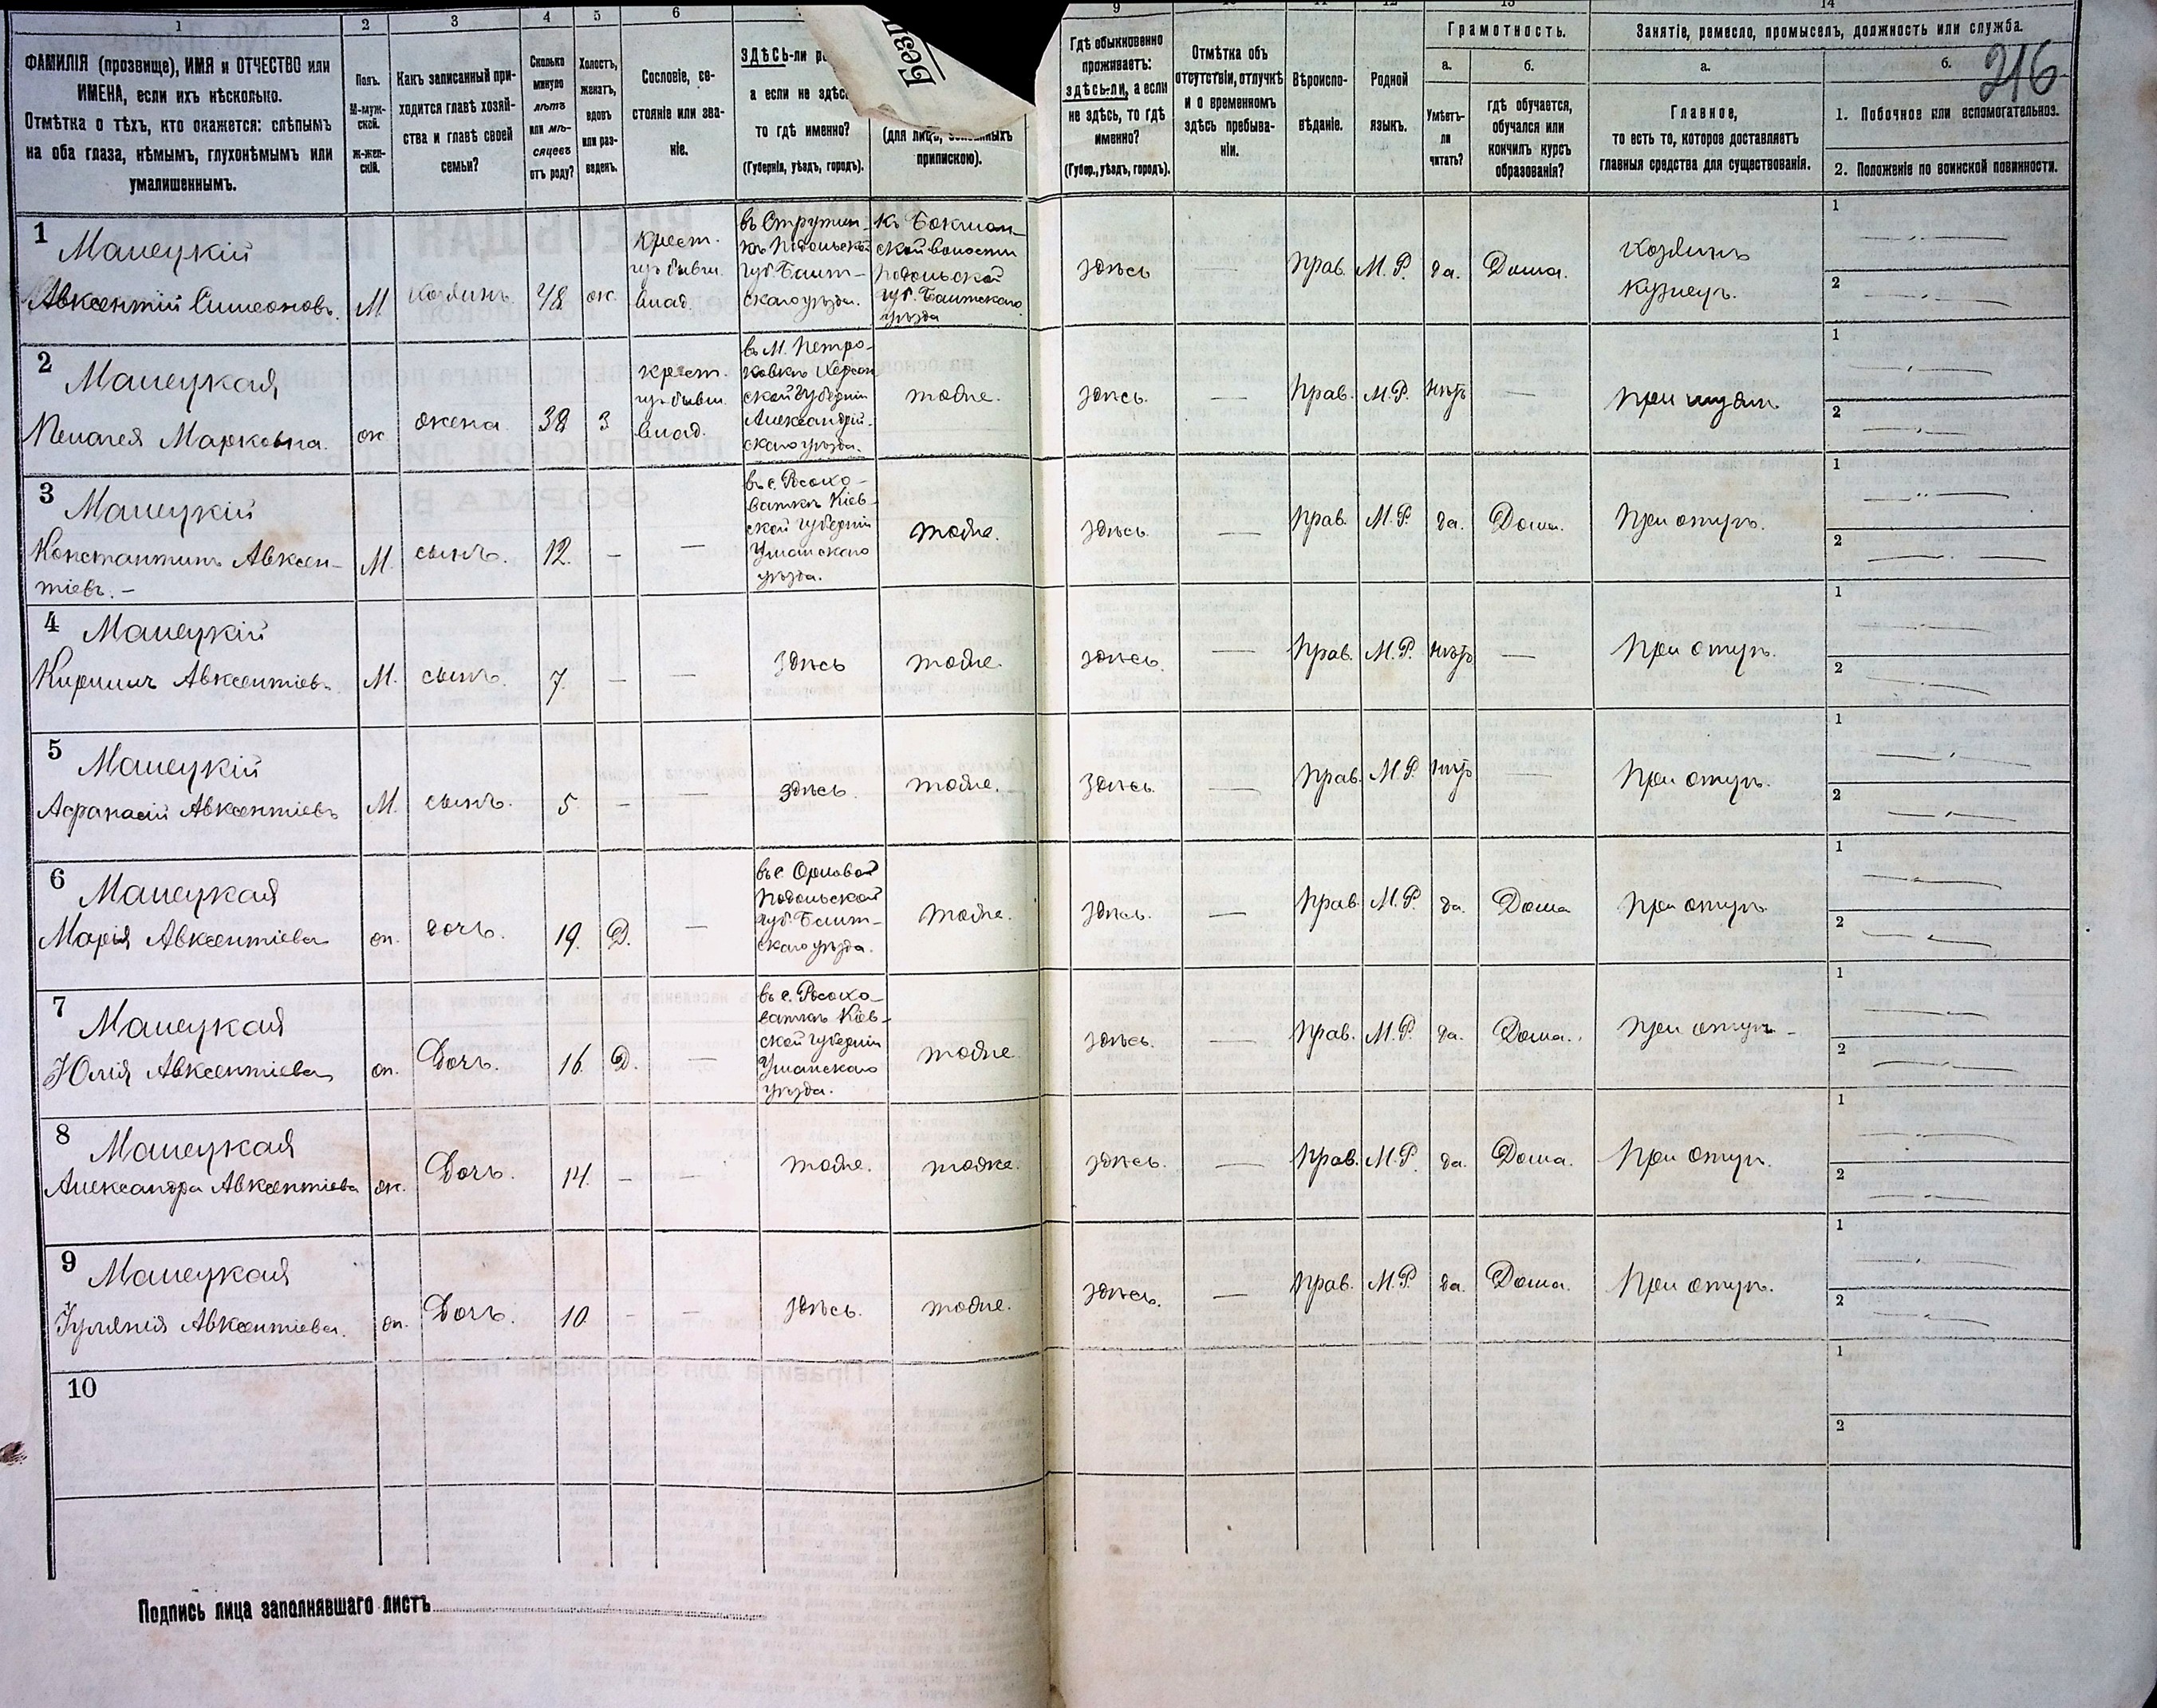 1
2
3
4
5
6
9
13
14
ФАМИЛІЯ (прозвище), ИМЯ и ОТЧЕСТВО или
ИМЕНА, если ихъ нѣсколько.
Отмѣтка о тѣхъ, кто окажется: слѣпымъ
на оба глаза, нѣмымъ, глухонѣмымъ или
умалишеннымъ.
Полъ.
М-муж-
ской.
Ж-жен-
скій.
Какъ записанный при-
ходится главѣ хозяй-
ства и главѣ своей
семьи?
Сколько
минуло
лѣтъ
или мѣ-
сяцевъ
отъ роду?
Холостъ,
женатъ,
вдовъ
или раз-
веденъ.
Сословіе, со-
стояніе или зва-
ніе.
ЗДѢСЬ-ли
а если не здѣсь
то гдѣ именно?
(Губернія, уѣздъ, городъ).
(для лицъ,
припискою).
Гдѣ обыкновенно
проживаетъ:
здѣсь-ли, а если
не здѣсь, то гдѣ
именно?
(Губер., уѣздъ, городъ).
Отмѣтка объ
отсутствіи, отлучкѣ
и о временномъ
здѣсь пребыва-
ніи.
Вѣроиспо-
вѣданіе.
Родной
языкъ.
Грамотность.
а.
Умѣетъ-
ли
читать?
б.
гдѣ обучается,
обучался или
кончилъ курсъ
образованія?
Занятіе, ремесло, промыселъ, должность или служба.
а.
Главное,
то есть то, которое доставляетъ
главныя средства для существованія.
б.
216
1. Побочное или вспомогательное.
2. Положеніе по воинской повинности.
1
Малецкій
Авксентій Симеоновъ.
М
хозяинъ.
48
ж.
Крест.
изъ бывш.
влад.
Подольской
губ. Балт-
скаго уѣзда.
волости
Подольской
губ. Балтскаго
уѣзда
здѣсь
—
Прав.
М. Р.
да.
Дома.
Хозяинъ
Кузнецъ.
1
2
2
Малецкая
Пелагея Марковна.
ж.
жена.
38
З
Крест.
изъ бывш.
влад.
въ М. Петро-
ковкѣ Херсон
ской губерніи
Александрій-
скаго уѣзда.
тоже.
здѣсь.
—
Прав.
М. Р.
нѣтъ
—
при мужѣ.
1
2
3
Малецкій
Константинъ Авксен-
тіевъ. –
М.
сынъ.
12.
–
—
въ с. Рсохо-
ваткѣ Кіев-
ской губерніи
Уманскаго
уѣзда.
тоже.
здѣсь.
—
Прав.
М. Р.
да.
Дома.
При отцѣ.
1
2
4
Малецкій
Кириллъ Авксентіевъ.
М.
сынъ.
7.
–
—
здѣсь
тоже.
здѣсь.
—
Прав.
М. Р.
нѣтъ
—
При отцѣ.
1
2
5
Малецкій
Афанасій Авксентіевъ
М.
сынъ.
5.
–
—
здѣсь.
тоже.
здѣсь.
—
Прав.
М. Р.
нѣтъ
—
При отцѣ.
1
2
6
Малецкая
Марія Авксентіева
ж.
дочь.
19.
Д.
—
въ с. Орловой
Подольской
губ. Балт-
скаго уѣзда.
тоже.
здѣсь.
—
Прав.
М. Р.
да.
Дома
При отцѣ
1
2
7
Малецкая
Юлія Авксентіева
ж.
Дочь.
16.
Д.
—
въ с. Рсохо-
ваткѣ Кіев-
ской губерніи
Уманскаго
уѣзда.
тоже
здѣсь.
—
Прав.
М. Р.
да.
Дома.
При отцѣ –
1
2
8
Малецкая
Александра Авксентіева
ж.
Дочь.
14.
–
—
тоже.
тоже.
здѣсь.
—
Прав.
М. Р.
да.
Дома.
При отцѣ.
1
2
9
Малецкая
Іулянія Авксентіева.
ж.
Дочь.
10.
–
—
здѣсь.
тоже.
здѣсь.
—
Прав.
М. Р.
да.
Дома.
При отцѣ.
1
2
10
1
2
Подпись лица заполнявшаго листъ